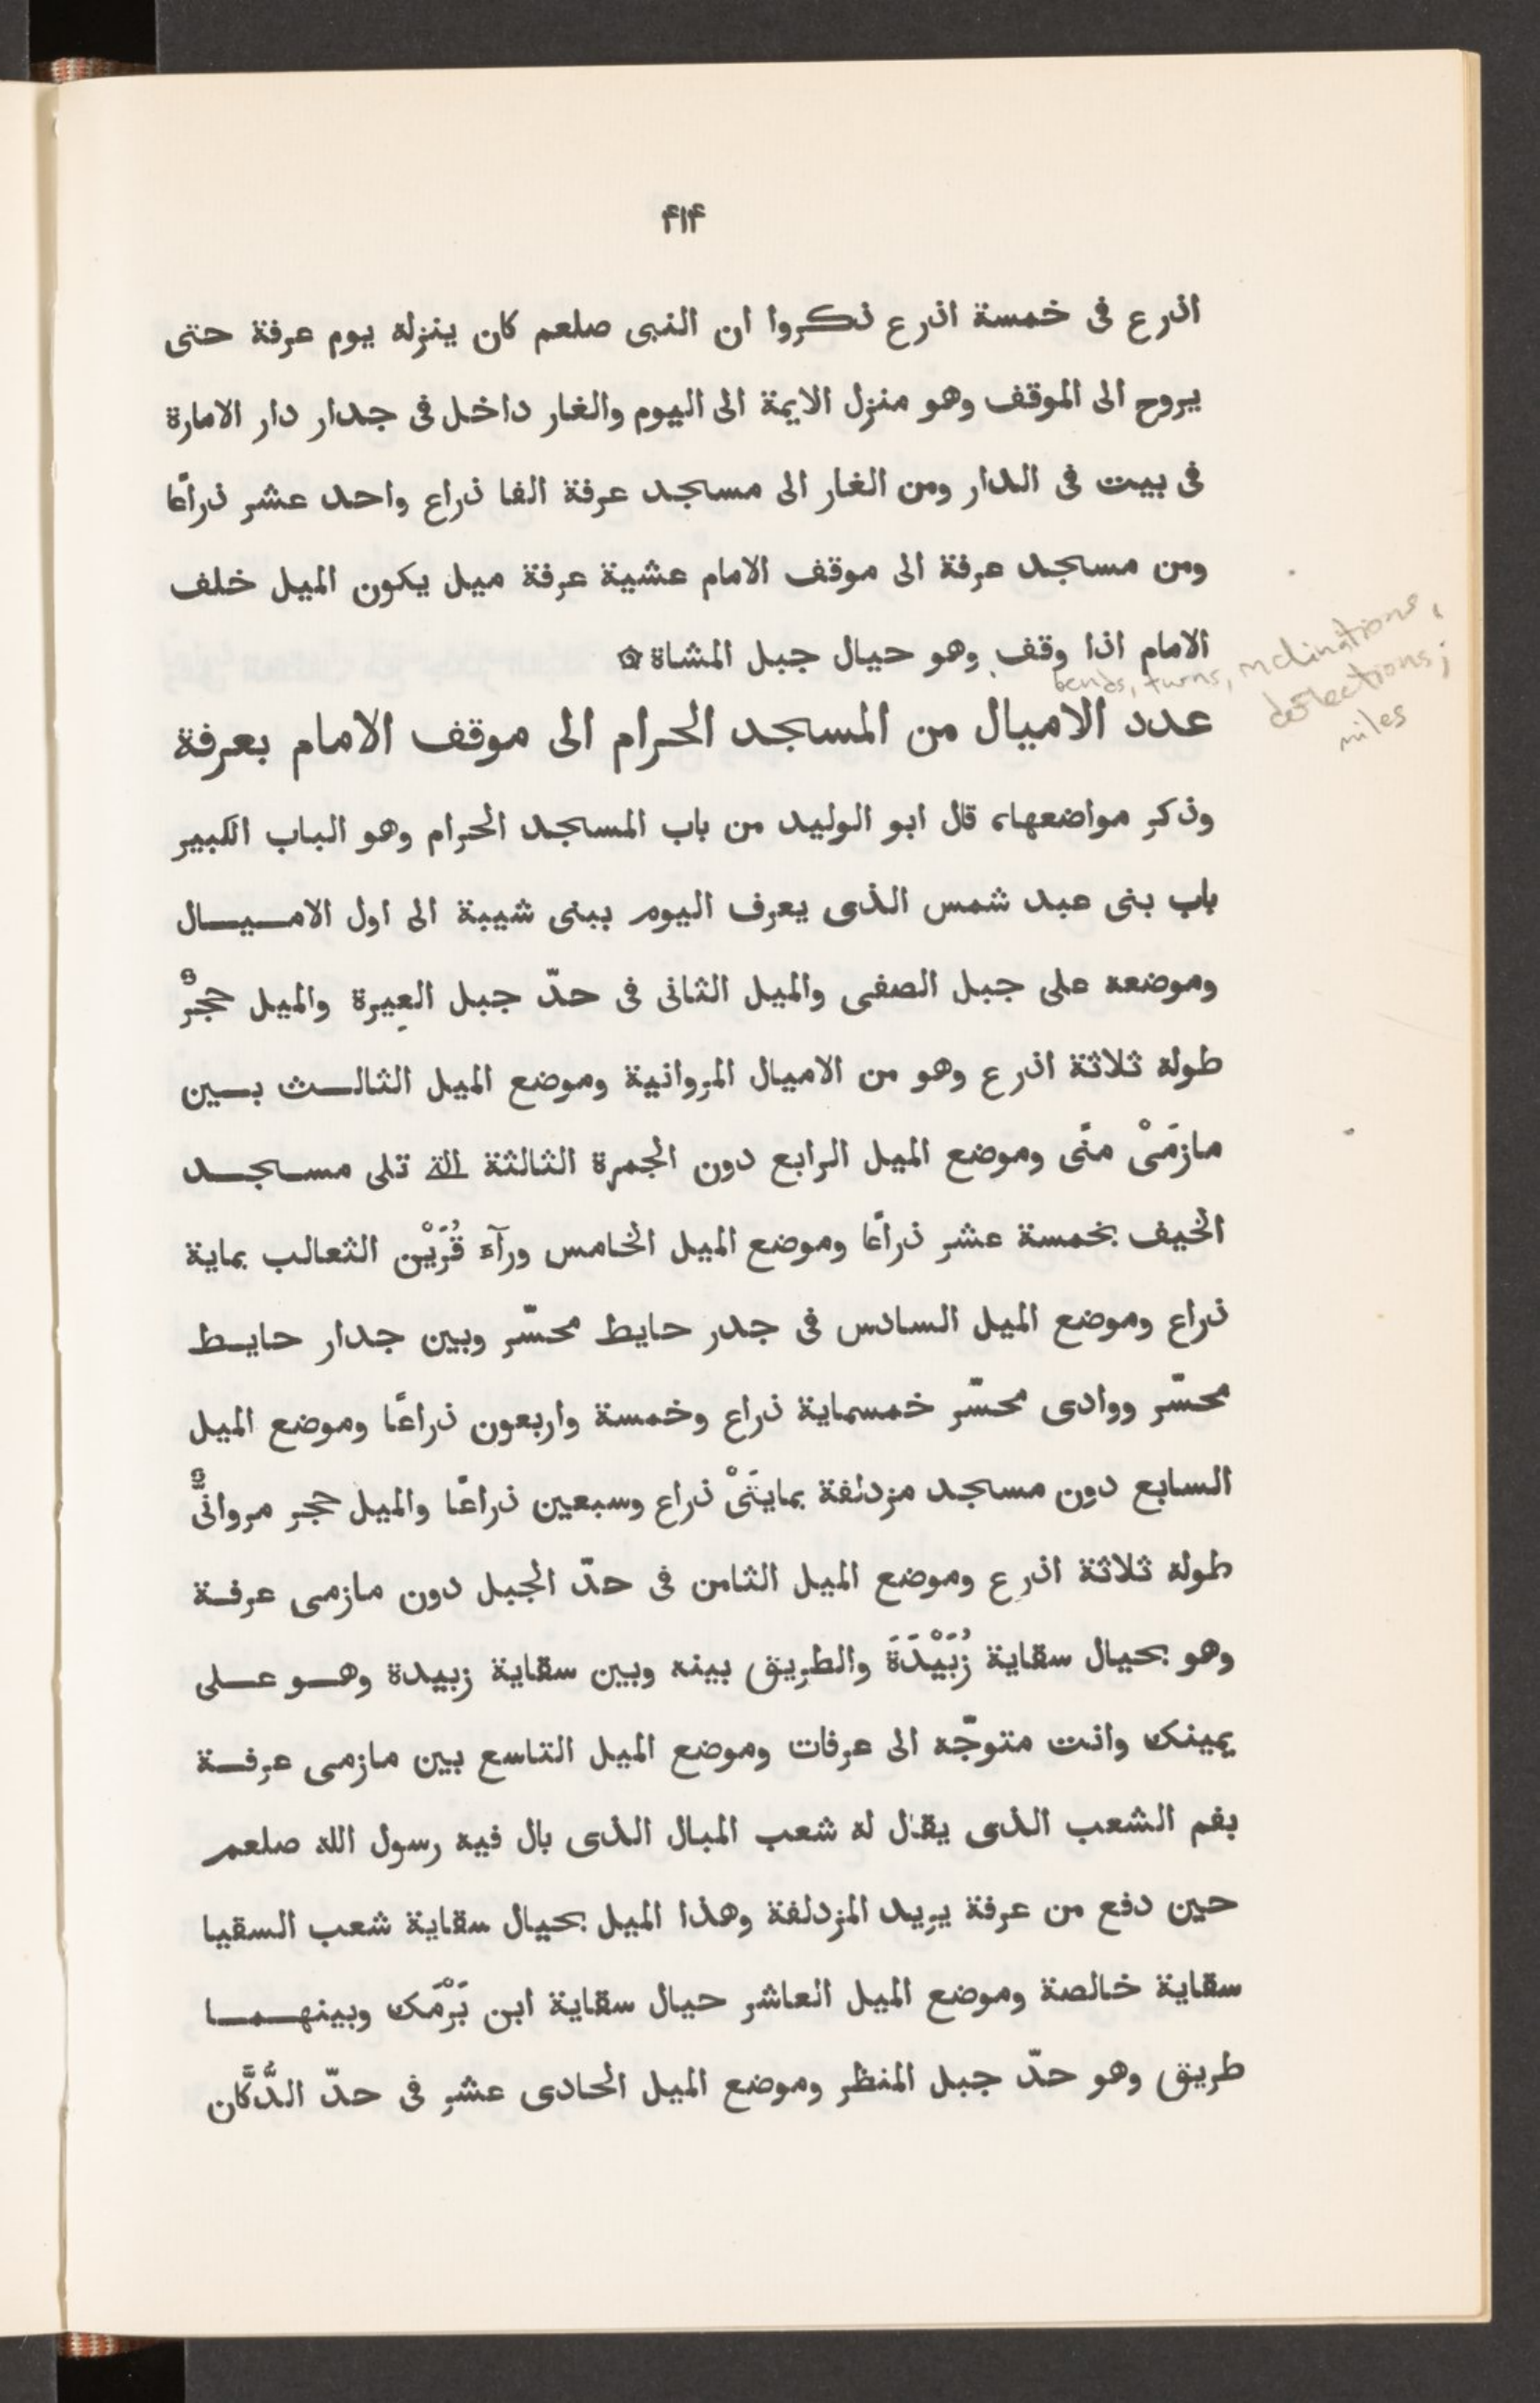 ۴۱۴
اذرع فى خمسة اذرع ذكروا ان النبى صلعم كان ينزله يوم عرفة حتى
يروح الى الموقف وهو منزل الايمة الى اليوم والغار داخل فى جدار دار الامارة
فى بيت فى الدار ومن الغار الى مسجد عرفة الفا ذراع واحد عشر ذراعًا
ومن مسجد عرفة الى موقف الامام عشية عرفة ميل يكون الميل خلف
الامام اذا وقف وهو حيال جبل المشاة ۞
bends, turns, inclinations,
deflections;
miles
عدد الاميال من المسجد الحرام الى موقف الامام بعرفة
وذكر مواضعها، قال ابو الوليد من باب المسجد الحرام وهو الباب الكبير
باب بنى عبد شمس الذى يعرف اليوم ببنى شيبة الى اول الامـيـال
وموضعه على جبل الصفى والميل الثانى فى حدّ جبل العِيرة والميل حجرٌ
طوله ثلاثة اذرع وهو من الاميال المروانية وموضع الميل الثالـث بـين
مازمَىْ منًى وموضع الميل الرابع دون الجمرة الثالثة التى تلى مسـجـد
الخيف بخمسة عشر ذراعًا وموضع الميل الخامس ورآء قُرَيْن الثعالب بماية
ذراع وموضع الميل السادس فى جدر حايط محسّر وبين جدار حايـط
محسّر ووادى محسّر خمسماية ذراع وخمسة واربعون ذراعًا وموضع الميل
السابع دون مسجد مزدلفة بمايتَىْ ذراع وسبعين ذراعًا والميل حجر مروانىٌّ
طوله ثلاثة اذرع وموضع الميل الثامن فى حدّ الجبل دون مازمى عرفـة
وهو بحيال سقاية زُبَيْدَةَ والطريق بينه وبين سقاية زبيدة وهـو عـلى
يمينك وانت متوجّه الى عرفات وموضع الميل التاسع بين مازمى عرفـة
بفم الشعب الذى يقال له شعب المبال الذى بال فيه رسول الله صلعم
حين دفع من عرفة يريد المزدلفة وهذا الميل بحيال سقاية شعب السقيا
سقاية خالصة وموضع الميل العاشر حيال سقاية ابن بَرْمَك وبينهـمـا
طريق وهو حدّ جبل المنظر وموضع الميل الحادى عشر فى حدّ الدُّكَّان